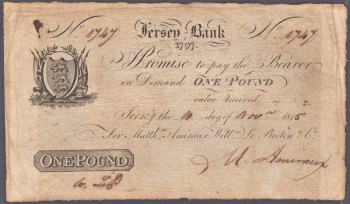 No. 1747 Jersey Bank No. 1747
1797
I Promise to pay the Bearer
on Demand ONE POUND
value received
Jersey the 10 day of Novr. 1815
For Matthw. Amiraux, Willm. Le Breton & Co.
ONE POUND
M. Amiraux